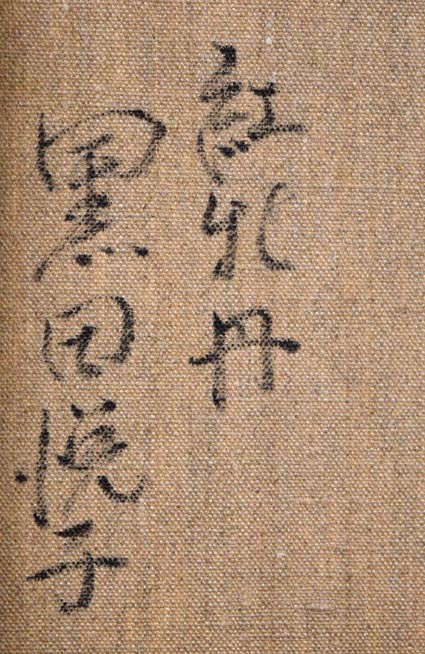 紅牡丹
黒田悦子